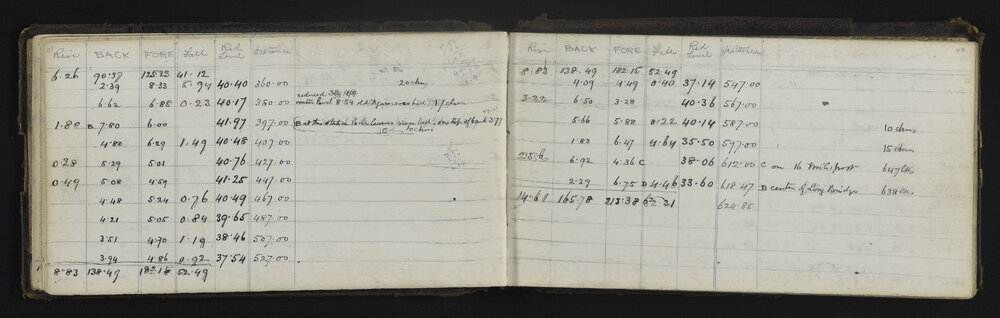 Rise BACK FORE Fall Red Level Distance
6.26 90.38 125.22 41.12
2.39 8.33 5.94 40.40 360.00 20 chns
6.62 6.85 0.23 40.17 380.00 reduced water level 8.59
1.80 B 7.80 6.00 41.97 397.00 B at this station
4.80 6.29 1.49 40.48 407.00 10 chns
0.28 5.29 5.01 40.76 427.00
0.49 5.08 4.59 41.25 447.00
4.48 5.24 0.76 40.49 467.00
4.21 5.05 0.84 39.65 487.00
3.51 4.70 1.19 38.46 507.00
3.94 4.86 0.92 37.54 527.00
8.83 138.49 182.15 52.49
42
Rise BACK FORE Fall Red Level Distance
8.83 138.49 182.15 52.49
4.09 4.49 0.40 37.14 547.00
3.22 6.50 3.28 40.36 567.00
5.66 5.88 0.22 40.14 587.00 10 chns
1.83 6.47 4.64 35.50 597.00 15 chns
2.56 6.92 4.36 C 38.06 612.00 C on 16 mile post 647 lks
2.29 6.75 D 4.46 33.60 618.47 D centre of Loij Bridge 638 lks
14.61 165.78 213.38 62.21 624.85